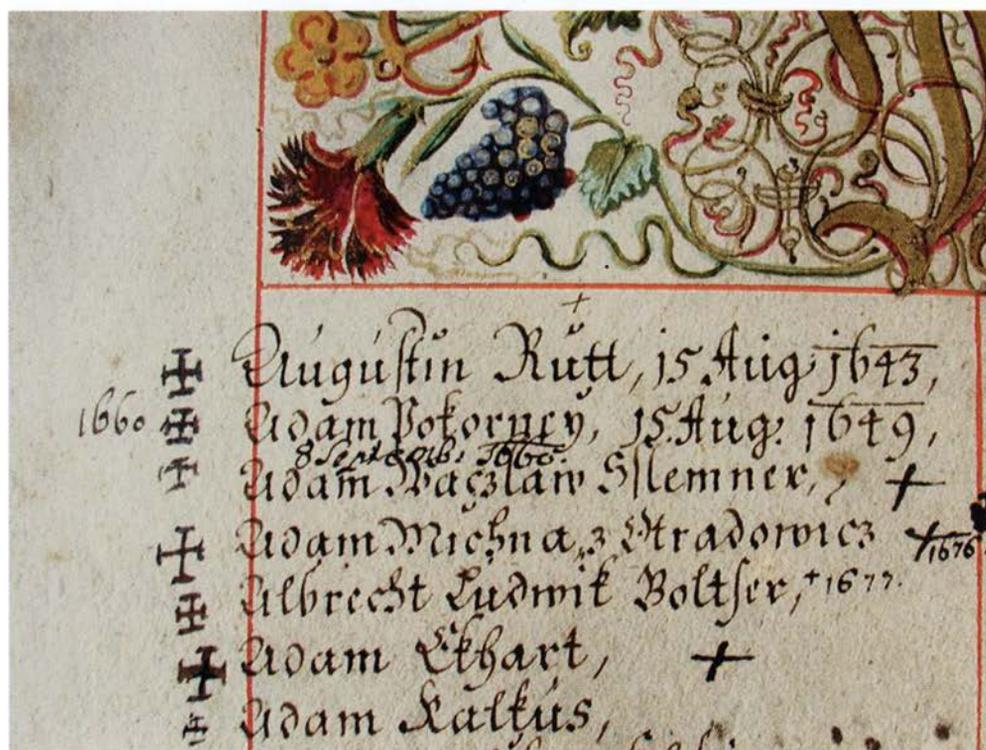 Augustin Rutt, 15 Aug: 1643,
1660 Adam Pokorney, 15. Aug: 1649,
8 Septemb: 1660.
Adam Waczlaw Sslemner, +
Adam Michna z Otradowicz +1676
Albrecht Ludwik Boltser, +1677.
Adam Ekhart, +
Adam Kalkus,